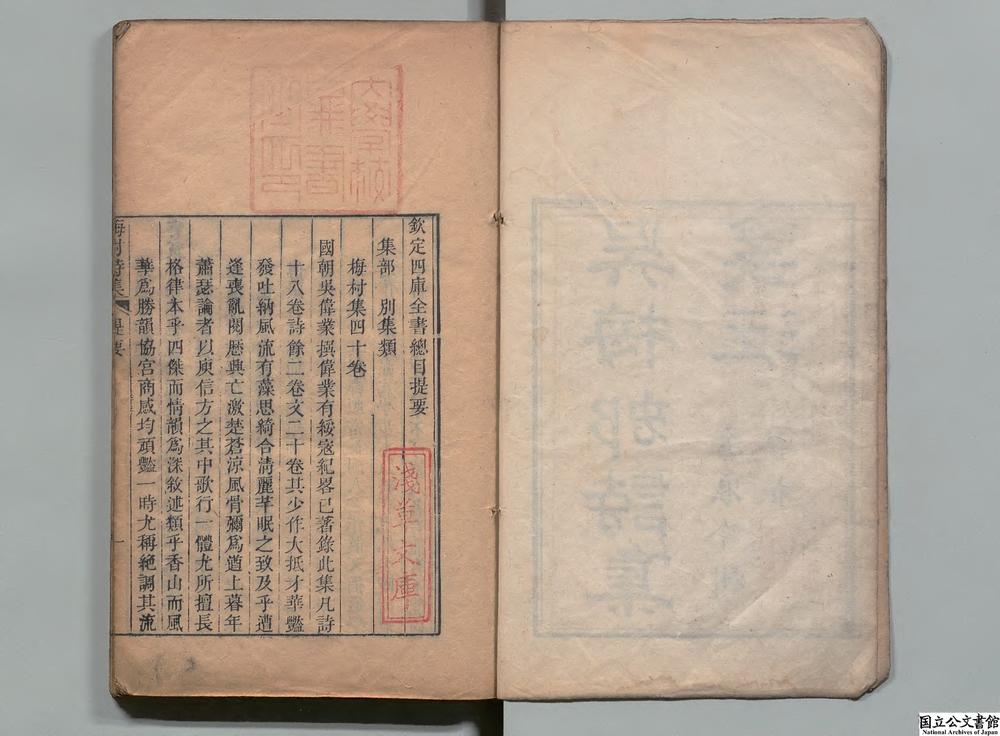 欽定四庫全書總目提要
集部 別集類
梅村集四十卷
國朝吳偉業撰偉業有綏寇紀畧已著錄此集凡詩
十八卷詩餘二卷文二十卷其少作大抵才華豔
發吐納風流有藻思綺合淸麗芊眠之致及乎遭
逢喪亂閱歴興亡激楚蒼涼風骨彌爲遒上暮年
蕭瑟論者以庾信方之其中歌行一體尤所擅長
格律本乎四傑而情韻爲深敘述類乎香山而風
華爲勝韻協宮商感均頑豔一時尤稱絕調其流
梅村詩集 提要 一
淺草文庫
国立公文書館
National Archives of Japan